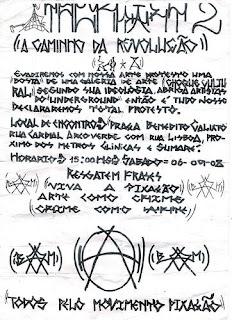 2
(A CAMINHO DA REVOLUÇÃO)
EVADIREMOS COM NOSSA ARTE PROTESTO UMA
BOSTA DE UMA GALERIA DE ARTE (CHOQUE CULTU
RAL) SEGUNDO SUA IDEOLOGIA, ABRIGA ARTISTAS
DO UNDERGROUND ENTÃO É TUDO NOSSO
DECLARAREMOS TOTAL PROTESTO.
LOCAL DE ENCONTRO: PRAÇA BENEDITO CALIXTO
RUA CARDIAL ARCOVERDE COM RUA LISBOA, PRO
XIMO DOS METROS CLINICAS E SUMARÉ.
HORARIO: 15:00HS SABADO= 06-09-08
RESGATEM FRASES
(VIVA A PIXAÇÃO)
ARTE COMO CRIME
CRIME COMO ARTE
TODOS PELO MOVIMENTO PIXAÇÃO